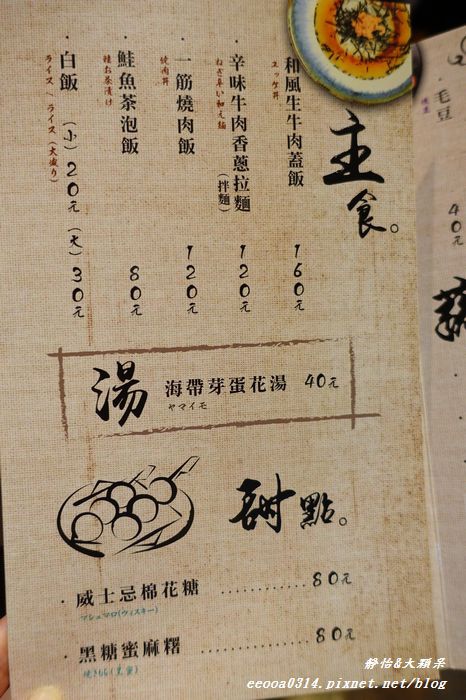 主食。
和風生牛肉蓋飯 160元
ユッケ丼
辛味牛肉香蔥拉麵(拌麵) 120元
一筋燒肉飯 120元
焼肉丼
鮭魚茶泡飯 80元
鮭お茶漬け
白飯 (小)20元 (大)30元
ライス、ライス(大盛り)
湯 海帶芽蛋花湯 40元
ヤマイモ
甜點。
·威士忌棉花糖 ............ 80元
マシュマロ(ウィスキー)
·黑糖蜜麻糬 ............ 80元
毛豆
40元
靜怡&大顆呆
eeooa0314.pixnet.net/blog